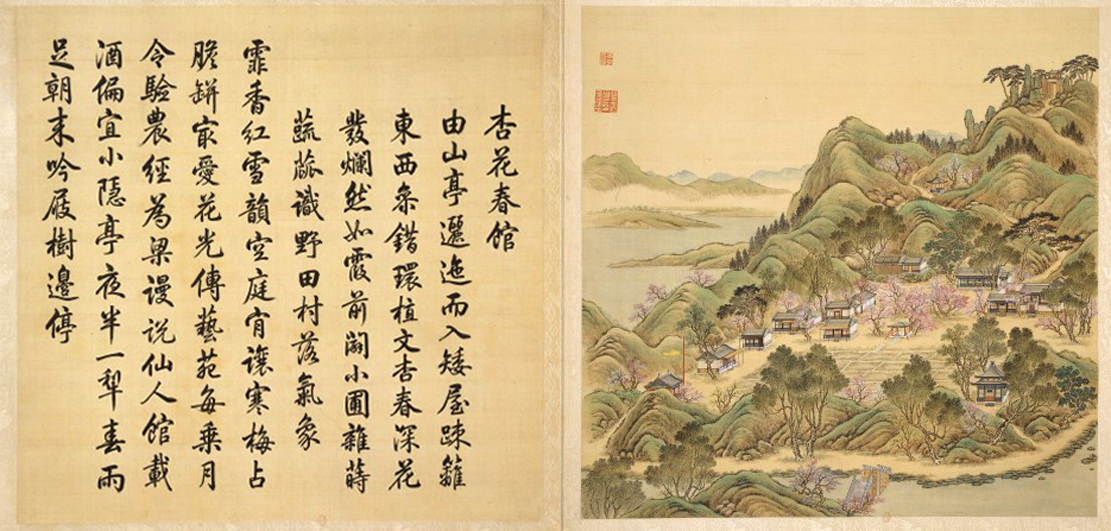 杏花春館
由山亭邐迤而入矮屋疎籬
東西叅錯環植文杏春深花
發爛然如霞前闢小圃雜蒔
蔬蓏識野田村落氣象
霏香紅雪韻空庭肯讓寒梅占
膽缾冣愛花光傳藝苑每乗月
令驗農經為梁謾說仙人館載
酒偏宜小隱亭夜半一犂春雨
足朝来吟屐樹邊停